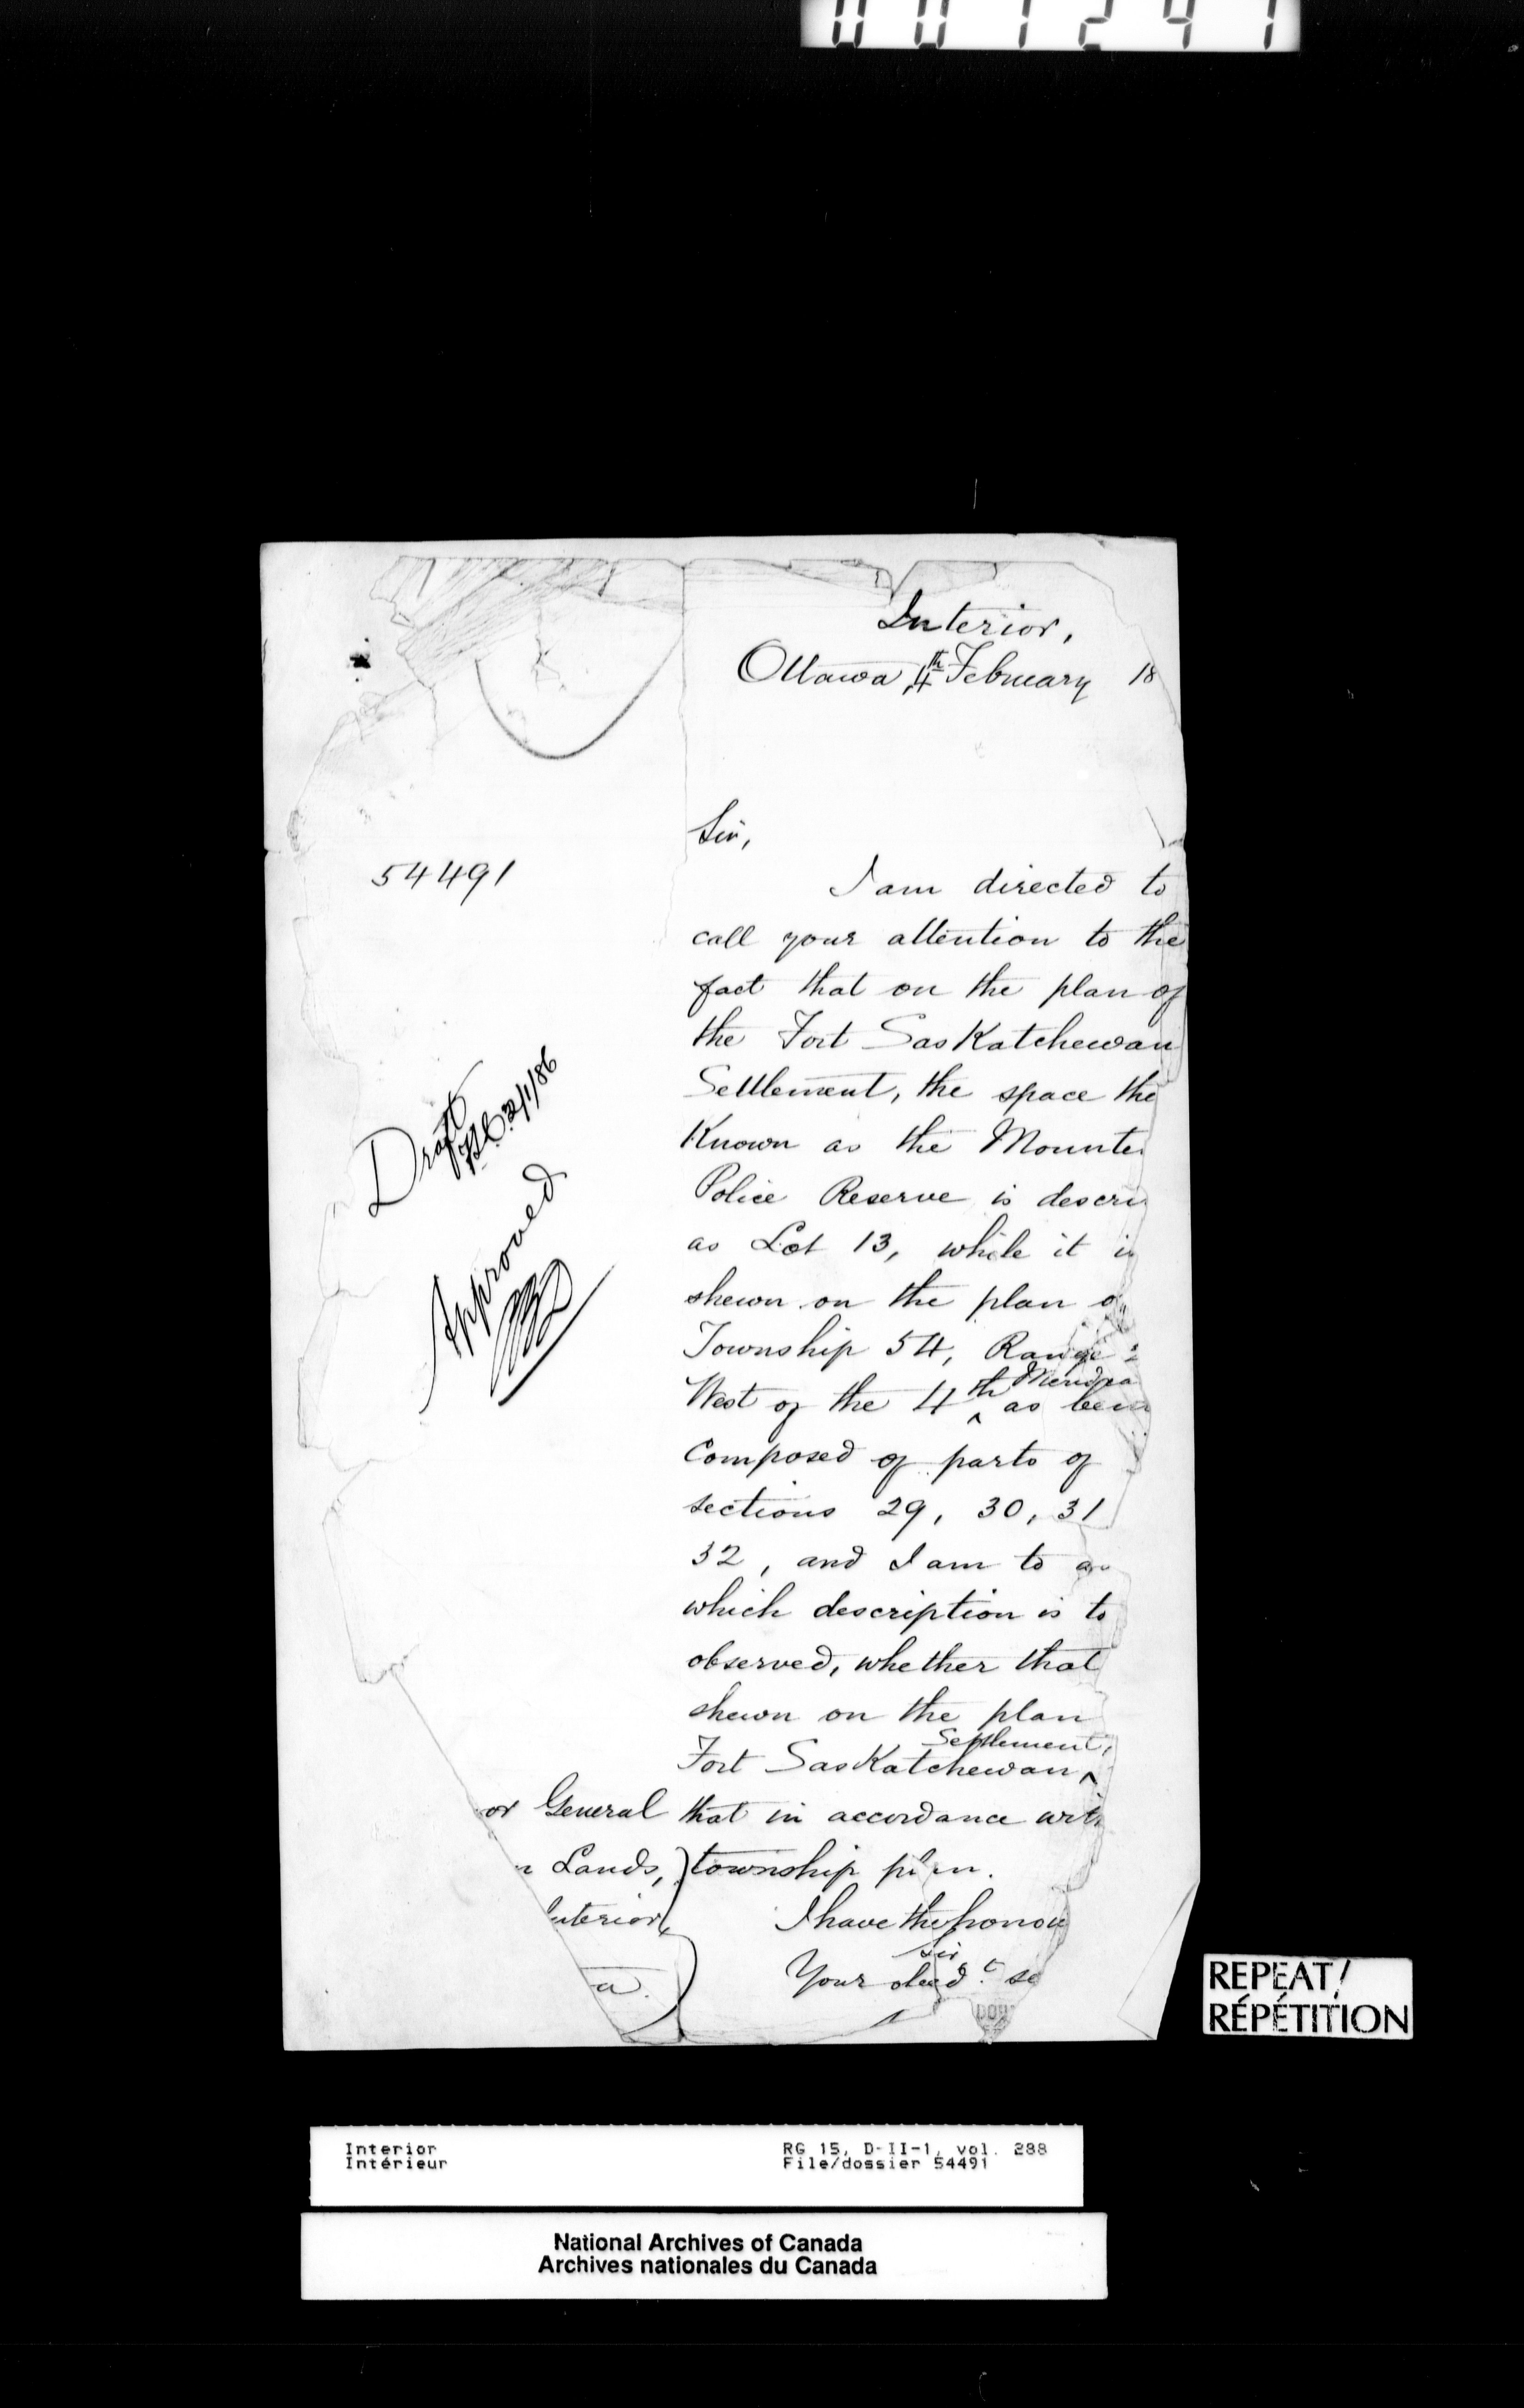 001291
Interior,
Ottawa, 4th February 18
Sir,
54491
I am directed to
call your attention to the
fact that on the plan of
the Fort Saskatchewan
Settlement, the space the
Known as the Mounte
Police Reserve is descri
as Lot 13, while it is
shewn on the plan o
Township 54, Range 2
West of the 4th Meridia as bein
Composed of parts of
sections 29, 30, 31
32, and I am to a
which description is to
observed, whether that
shewn on the plan
Fort Saskatchewan Settlement,
that in accordance wit
township plan.
I have the honou
Sir
Your obed.t se
Draft
Approved
or General
n Lands,
Interior
a.
REPEAT/
RÉPÉTITION
Interior RG 15, D-II-1, vol. 288
Intérieur File/dossier 54491
National Archives of Canada
Archives nationales du Canada